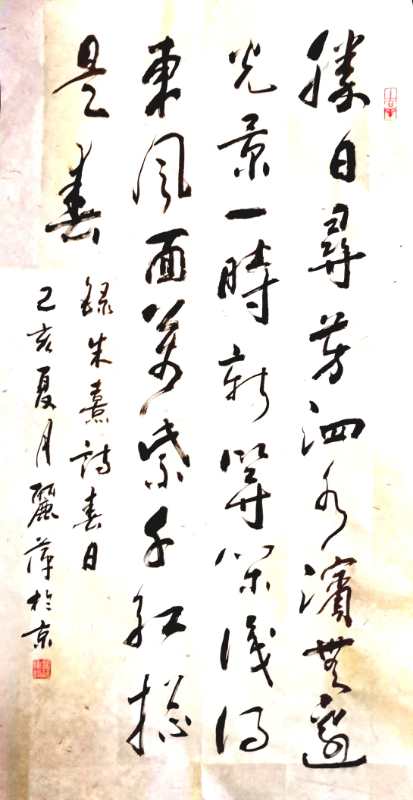 勝日尋芳泗水濱無邊
光景一時新等閒識得
東風面萬紫千紅總
是春
錄朱熹詩春日
己亥夏月麗萍於京